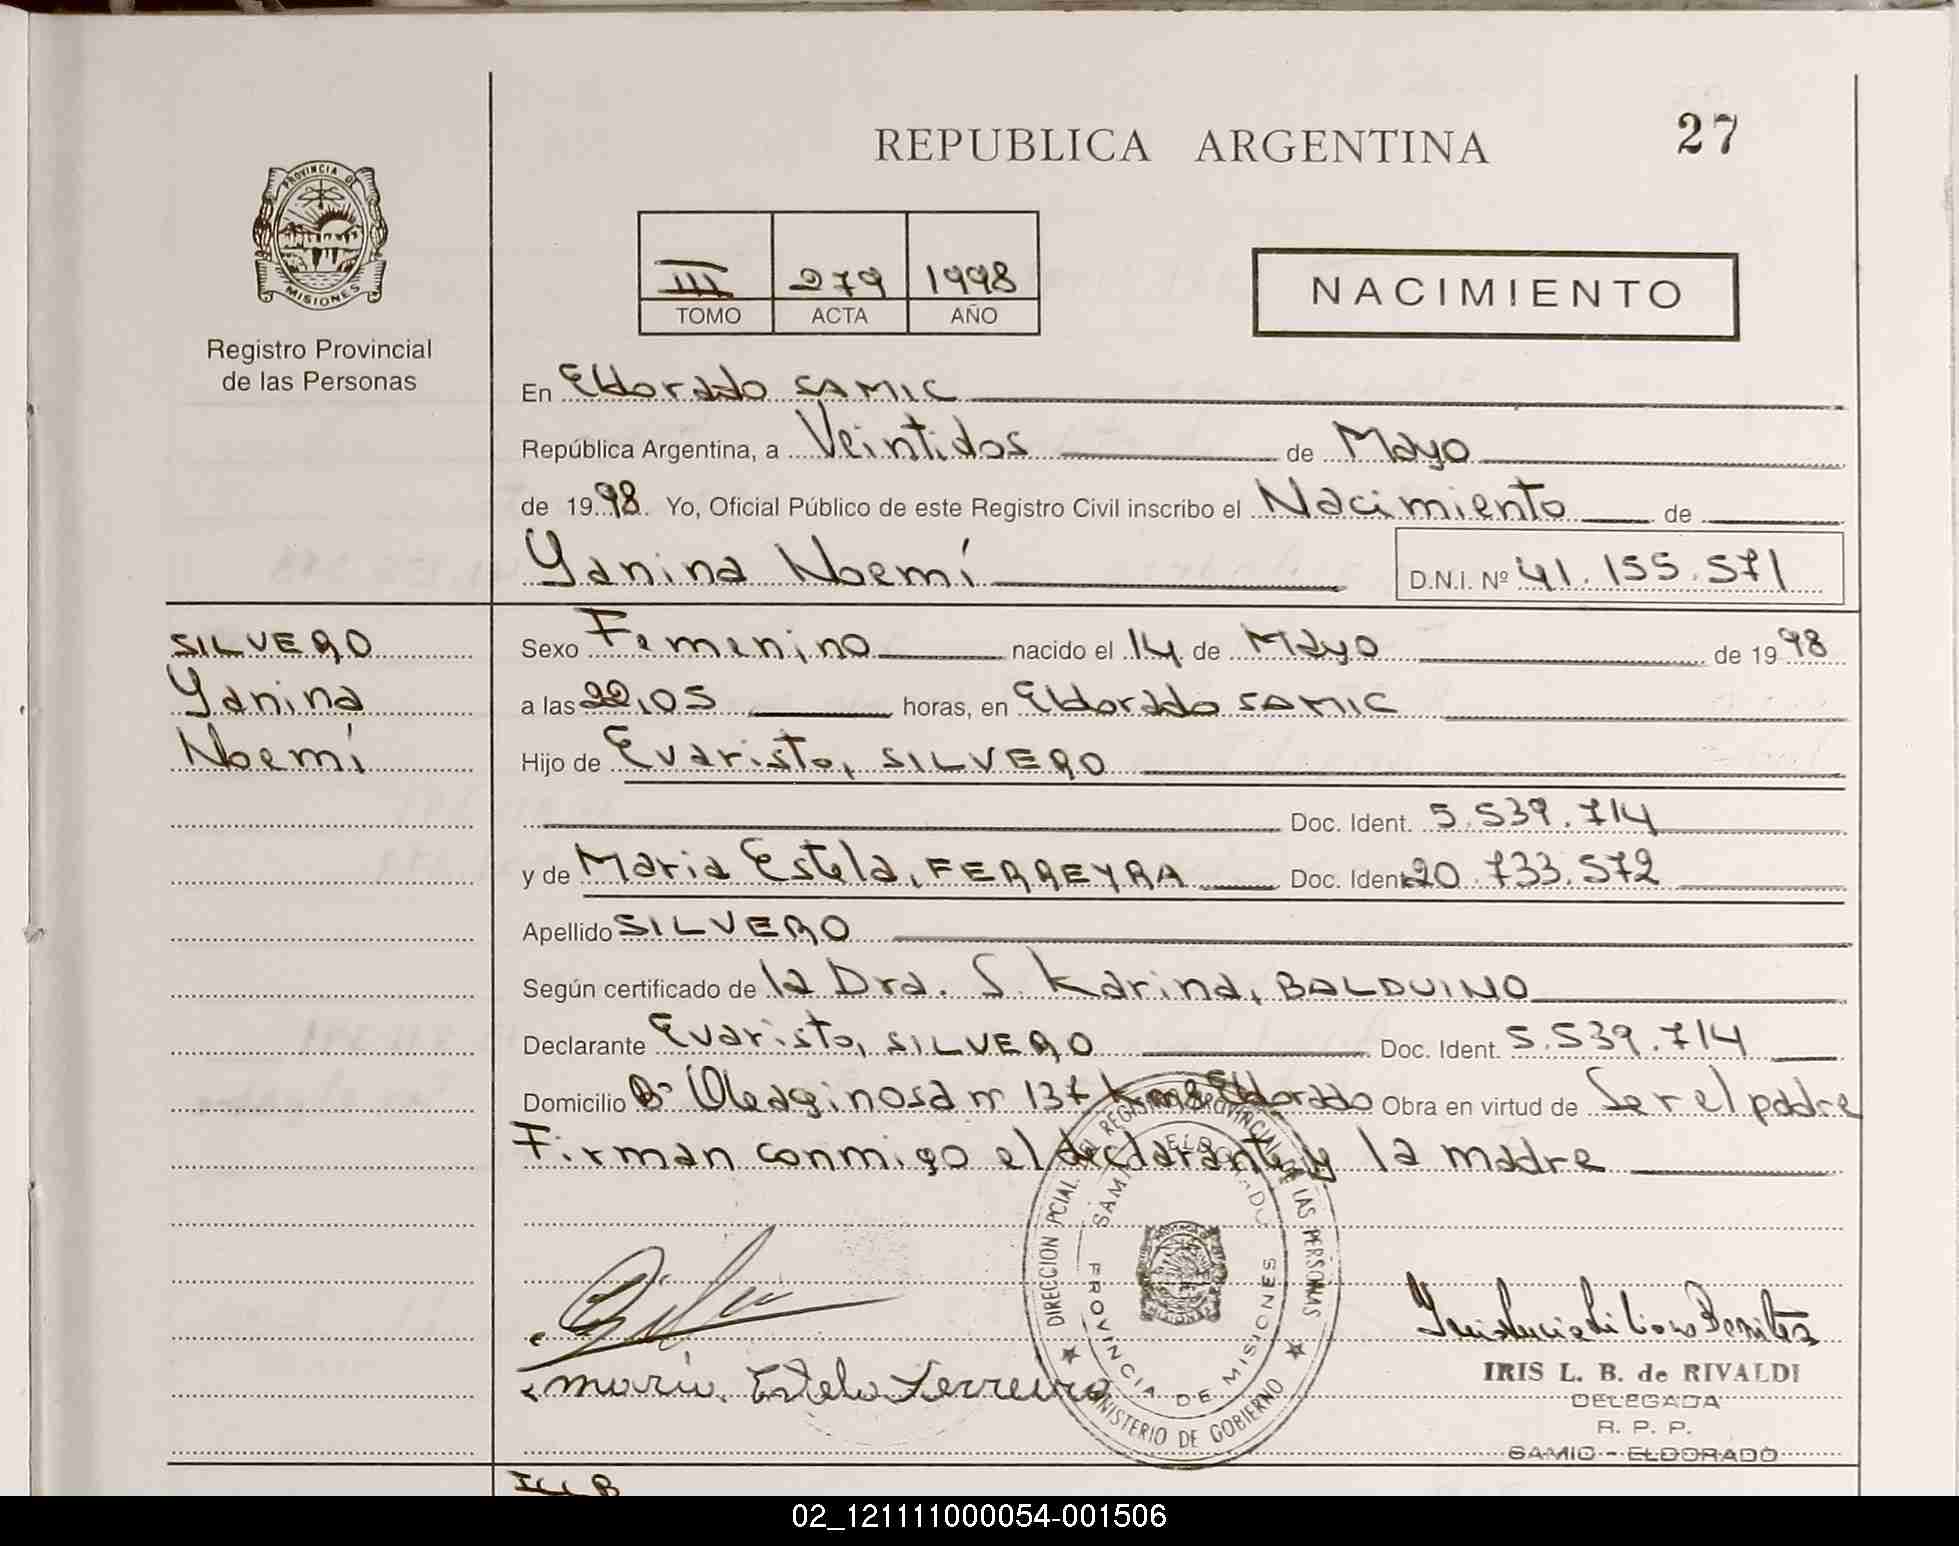 27
REPUBLICA ARGENTINA
PROVINCIA DE
MISIONES
Registro Provincial
de las Personas
III 279 1998
TOMO ACTA AÑO
NACIMIENTO
En Eldorado SAMIC
República Argentina, a Veintidos de Mayo
de 1998. Yo, Oficial Público de este Registro Civil inscribo el Nacimiento de
Yanina Noemí D.N.I. Nº 41.155.571
SILVERO
Yanina
Noemí
Sexo Femenino nacido el 14 de Mayo de 1998
a las 22,05 horas, en Eldorado SAMIC
Hijo de Evaristo, SILVERO
Doc. Ident. 5.539.714
y de Maria Estela, FERREYRA Doc. Ident. 20.733.572
Apellido SILVERO
Según certificado de la Dra. S. Karina, BALDUINO
Declarante Evaristo, SILVERO Doc. Ident. 5.539.714
Domicilio Bº Oleaginosa nº 137 km 8 Eldorado Obra en virtud de Ser el padre
Firman conmigo el declarante y la madre
DIRECCION PCIAL. DEL REGISTRO PROVINCIAL DE LAS PERSONAS
SAMIC ELDORADO
PROVINCIA DE MISIONES
MINISTERIO DE GOBIERNO
Maria Estela Ferreira
IRIS L. B. de RIVALDI
DELEGADA
R. P. P.
SAMIC - ELDORADO
02_121111000054-001506